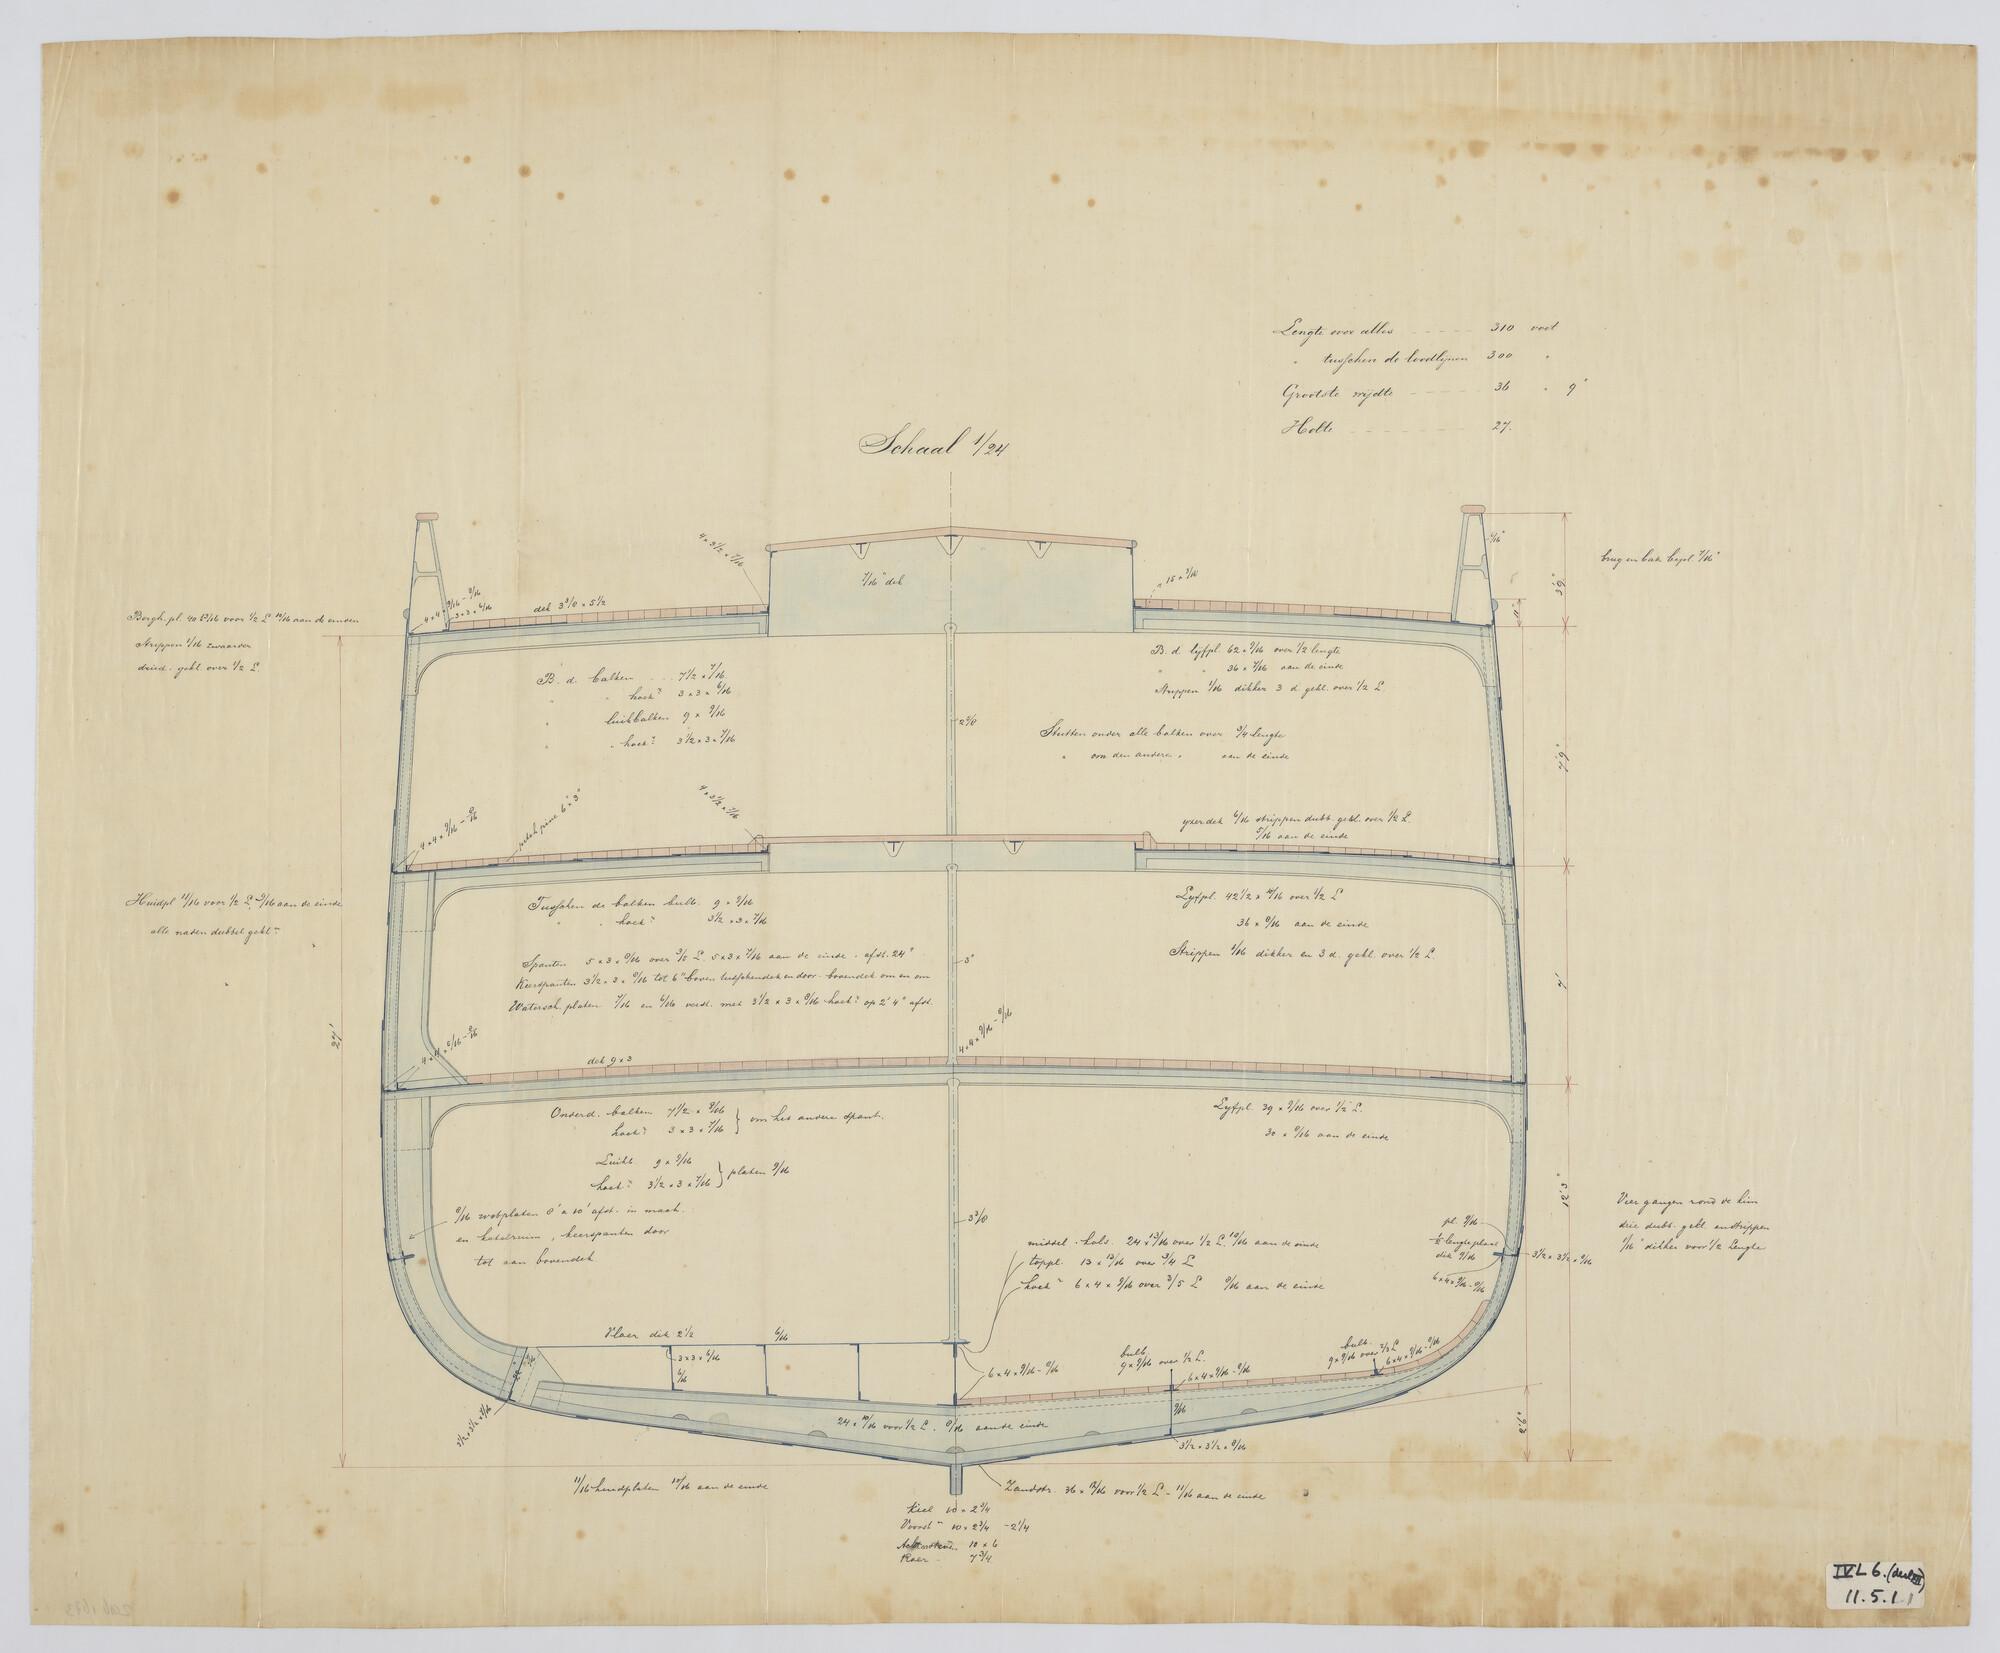 Lengte over alles 310 voet
" tusschen de loodlijnen 300 "
Grootste wijdte 36 " 9"
Holte 27.
Schaal 1/24
4 x 3 1/2 x 7/16
7/16" dek
15 x 9/16
brug en bak bepl. 7/16"
39"
dek 3 3/8 x 5 1/2
3 x 3 x 6/16
voor 1/2 L 10/16 aan de einden
Strippen 1/16 zwaarder
dried. gekl. over 1/2 L.
B. d. balken 7 1/2 x 7/16
" hoek 3 x 3 x 6/16
" luikbalken 9 x 9/16
" " hoek 3 1/2 x 3 x 7/16
B. d. lijfpl. 62 x 9/16 over 1/2 lengte
" " 36 x 7/16 aan de einde
Strippen 1/16 dikker 3 d. gekl. over 1/2 L.
Stutten onder alle balken over 3/4 lengte
" om den anderen " aan de einde
7'9"
pitch pine 6" x 3"
4 x 3 1/2 x 7/16
yzer dek 6/16 strippen dubb. gekl. over 1/2 L.
5/16 aan de einde
Huidpl. 11/16 voor 1/2 L, 9/16 aan de einde
alle naden dubbel gekl.
Tusschen de balken bulb. 9 x 9/16
" " hoek 3 1/2 x 3 x 7/16
Spanten 5 x 3 x 8/16 over 3/5 L. 5 x 3 x 7/16 aan de einde. afst. 24"
Keerspanten 3 1/2 x 3 x 8/16 tot 6" boven tusschendek en door bovendek om en om
Watersch. platen 7/16 en 6/16 verst. met 3 1/2 x 3 x 8/16 hoek op 2' 4" afst.
Lijfpl. 42 1/2 x 10/16 over 1/2 L
36 x 8/16 aan de einde
Strippen 1/16 dikker en 3 d. gekl. over 1/2 L.
3"
7'
27'
4 x 4 x 9/16 - 8/16
dek 9 x 3
Onderd. balken 7 1/2 x 8/16
hoek 3 x 3 x 7/16
om het andere spant.
Luikb. 9 x 9/16
hoek 3 1/2 x 3 x 7/16
platen 9/16
Lijfpl. 39 x 9/16 over 1/2 L.
30 x 8/16 aan de einde
12'3"
8/16 webplaten 8' a 10' afst. in mach.
en ketelruim, keerspanten door
tot aan bovendek
3 3/8
middel kols. 24 x 13/16 over 1/2 L. 10/16 aan de einde
toppl. 13 x 13/16 over 3/4 L
hoek 6 x 4 x 9/16 over 3/5 L 8/16 aan de einde
pl. 9/16
1/2 lengte plaat
dik 9/16
6 x 4 x 9/16 - 8/16
3 1/2 x 3 1/2 x 8/16
Vier gangen rond de kim
drie dubb. gekl. en strippen
1/16" dikker voor 1/2 Lengte
Vloer dik 2 1/2
6/16
3 x 3 x 6/16
6/16
6 x 4 x 9/16 - 8/16
bulb.
9 x 9/16 over 1/2 L.
6 x 4 x 9/16 - 8/16
bulb.
6 x 4 x 9/16 - 8/16
9/16
3 1/2 x 3 1/2 x 8/16
24 x 10/16 voor 1/2 L. 8/16 aan de einde
2'6"
11/16 huidplaten 10/16 aan de einde
Zandstr. 36 x 12/16 voor 1/2 L - 11/16 aan de einde
Kiel 10 x 2 3/4
Voorst 10 x 2 3/4 - 2 1/4
10 x 6
Roer 7 3/4
IV L 6.
11.5.1